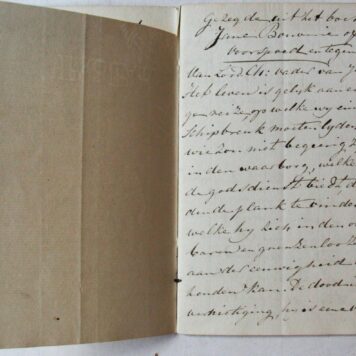 Gezegden uit het boe
Jane Bouverie of
voorspoed en tegen
Aan Lord Ch: vader van J
Het leven is gelijk aan een
gen reize, op welke wy een
Schipbreuk moeten lyden
wie zou niet begeerig z
in den waarborg, welke
de godsdienst biedt, d
den de plank te vinden
welke hy zich in den o
baren en grenzenloozen
aan des eeuwigheid
houden kan. De dood
vernietiging, hy is een